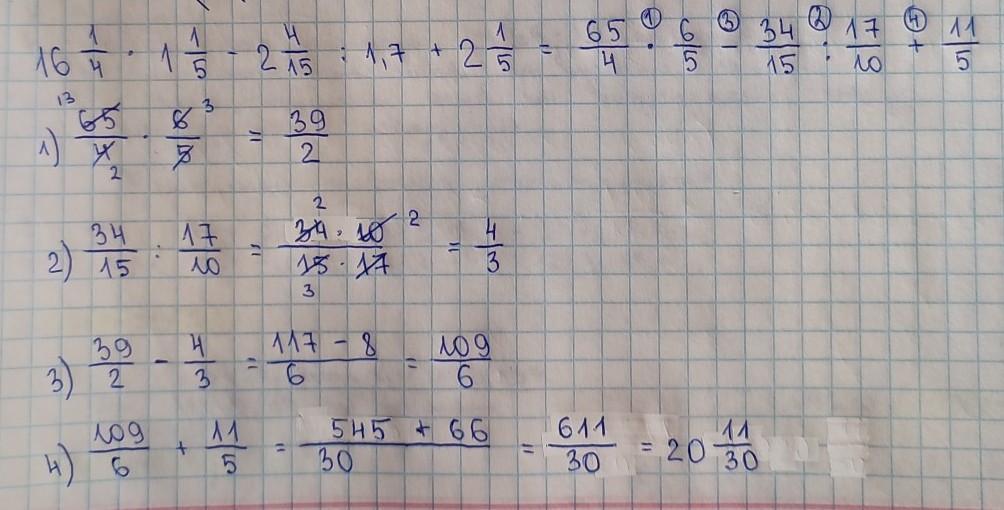 16 1/4 · 1 1/5 - 2 4/15 : 1,7 + 2 1/5 = 65/4 ① · 6/5 ③ - 34/15 ② : 17/10 ④ + 11/5
1) 13 65/4 2 · 6/5 3 = 39/2
2) 34/15 : 17/10 = 2 34 · 10 2 / 15 · 17 3 = 4/3
3) 39/2 - 4/3 = 117 - 8 / 6 = 109/6
4) 109/6 + 11/5 = 545 + 66 / 30 = 611/30 = 20 11/30